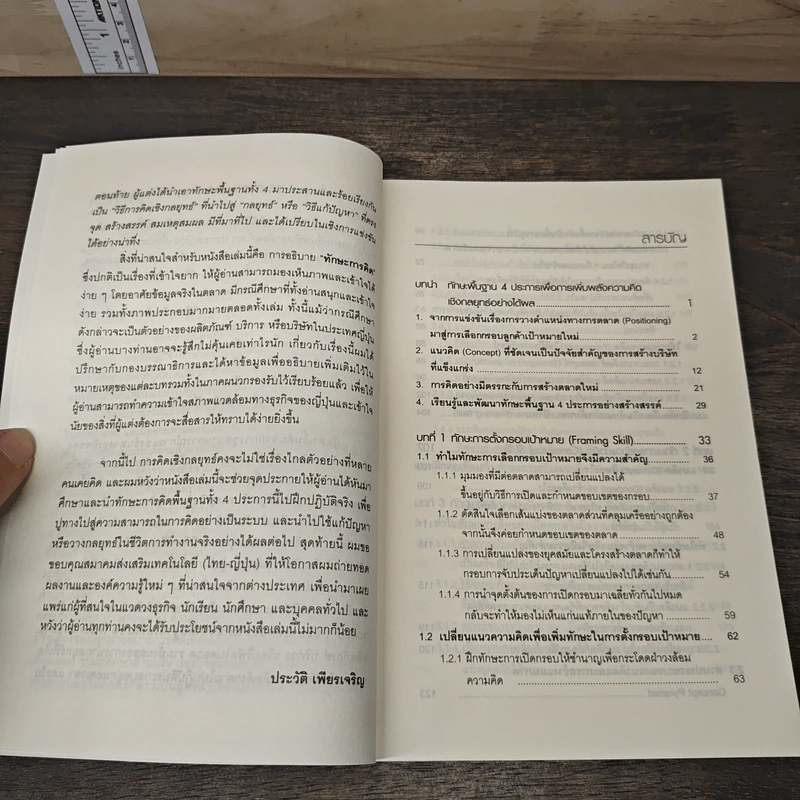 ตอนท้าย ผู้แต่งได้นำเอาทักษะพื้นฐานทั้ง 4 มาประสานและร้อยเรียงกัน
เป็น "วิธีการคิดเชิงกลยุทธ์" ที่นำไปสู่ "กลยุทธ์" หรือ "วิธีแก้ปัญหา" ที่ตรง
จุด สร้างสรรค์ สมเหตุสมผล มีที่มาที่ไป และได้เปรียบในเชิงการแข่งขัน
ได้อย่างน่าทึ่ง
สิ่งที่น่าสนใจสำหรับหนังสือเล่มนี้คือ การอธิบาย "ทักษะการคิด"
ซึ่งปกติเป็นเรื่องที่เข้าใจยาก ให้ผู้อ่านสามารถมองเห็นภาพและเข้าใจได้
ง่าย ๆ โดยอาศัยข้อมูลจริงในตลาด มีกรณีศึกษาที่ทั้งอ่านสนุกและเข้าใจ
ง่าย รวมทั้งภาพประกอบมากมายตลอดทั้งเล่ม ทั้งนี้แม้ว่ากรณีศึกษา
ดังกล่าวจะเป็นตัวอย่างของผลิตภัณฑ์ บริการ หรือบริษัทในประเทศญี่ปุ่น
ซึ่งผู้อ่านบางท่านอาจจะรู้สึกไม่คุ้นเคยเท่าไรนัก เกี่ยวกับเรื่องนี้ผมได้
ปรึกษากับกองบรรณาธิการและได้หาข้อมูลเพื่ออธิบายเพิ่มเติมไว้ใน
หมายเหตุของแต่ละบทรวมทั้งในภาคผนวกรองรับไว้เรียบร้อยแล้ว เพื่อให้
ผู้อ่านสามารถทำความเข้าใจสภาพแวดล้อมทางธุรกิจของญี่ปุ่นและเข้าใจ
นัยของสิ่งที่ผู้แต่งต้องการจะสื่อสารให้ทราบได้ง่ายยิ่งขึ้น
จากนี้ไป การคิดเชิงกลยุทธ์คงจะไม่ใช่เรื่องไกลตัวอย่างที่หลาย
คนเคยคิด และผมหวังว่าหนังสือเล่มนี้จะช่วยจุดประกายให้ผู้อ่านได้หันมา
ศึกษาและนำทักษะการคิดพื้นฐานทั้ง 4 ประการนี้ไปฝึกปฏิบัติจริง เพื่อ
ปูทางไปสู่ความสามารถในการคิดอย่างเป็นระบบ และนำไปใช้แก้ปัญหา
หรือวางกลยุทธ์ในชีวิตการทำงานจริงอย่างได้ผลต่อไป สุดท้ายนี้ ผมขอ
ขอบคุณสมาคมส่งเสริมเทคโนโลยี (ไทย-ญี่ปุ่น) ที่ให้โอกาสผมถ่ายทอด
ผลงานและองค์ความรู้ใหม่ ๆ ที่น่าสนใจจากต่างประเทศ เพื่อนำมาเผย
แพร่แก่ผู้ที่สนใจในแวดวงธุรกิจ นักเรียน นักศึกษา และบุคคลทั่วไป และ
หวังว่าผู้อ่านทุกท่านคงจะได้รับประโยชน์จากหนังสือเล่มนี้ไม่มากก็น้อย
ประวัติ เพียรเจริญ
สารบัญ
บทนำ ทักษะพื้นฐาน 4 ประการเพื่อการเพิ่มพลังความคิด
เชิงกลยุทธ์อย่างได้ผล 1
1. จากการแข่งขันเรื่องการวางตำแหน่งทางการตลาด (Positioning)
มาสู่การเลือกกรอบลูกค้าเป้าหมายใหม่ 2
2. แนวคิด (Concept) ที่ชัดเจนเป็นปัจจัยสำคัญของการสร้างบริษัท
ที่แข็งแกร่ง 12
3. การคิดอย่างมีตรรกะกับการสร้างตลาดใหม่ 21
4. เรียนรู้และพัฒนาทักษะพื้นฐาน 4 ประการอย่างสร้างสรรค์ 29
บทที่ 1 ทักษะการตั้งกรอบเป้าหมาย (Framing Skill) 33
1.1 ทำไมทักษะการเลือกกรอบเป้าหมายจึงมีความสำคัญ 36
1.1.1 มุมมองที่มีต่อตลาดสามารถเปลี่ยนแปลงได้
ขึ้นอยู่กับวิธีการเปิดและกำหนดขอบเขตของกรอบ 37
1.1.2 ตัดสินใจเลือกเส้นแบ่งของตลาดส่วนที่คลุมเครืออย่างถูกต้อง
จากนั้นจึงค่อยกำหนดขอบเขตของตลาด 48
1.1.3 การเปลี่ยนแปลงของยุคสมัยและโครงสร้างตลาดก็ทำให้
กรอบการจับประเด็นปัญหาเปลี่ยนแปลงไปได้เช่นกัน 54
1.1.4 การนำจุดตั้งต้นของการเปิดกรอบมาเฉลี่ยทั่วกันไปหมด
กลับจะทำให้มองไม่เห็นแก่นแท้ภายในของปัญหา 59
1.2 เปลี่ยนแนวความคิดเพื่อเพิ่มทักษะในการตั้งกรอบเป้าหมาย 62
1.2.1 ฝึกทักษะการเปิดกรอบให้ชำนาญเพื่อกระโดดฝ่าวงล้อม
ความคิด 63